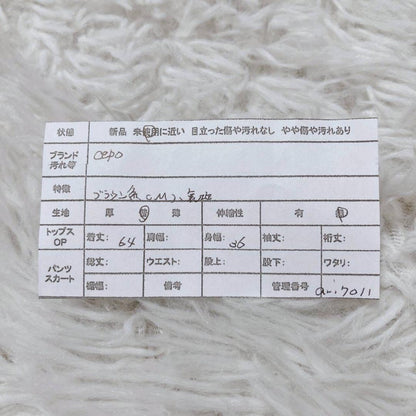 状態 新品 未使用に近い 目立った傷や汚れなし やや傷や汚れあり
ブランド 汚れ等 cepo
特徴 ブラウン系 (M)
生地 厚 普 薄 伸縮性 有 無
トップス OP 着丈: 64 肩幅: 身幅: 36 袖丈: 裄丈:
パンツ スカート 総丈: ウエスト: 股上: 股下: ワタリ:
裾幅: 備考 管理番号 ari7011